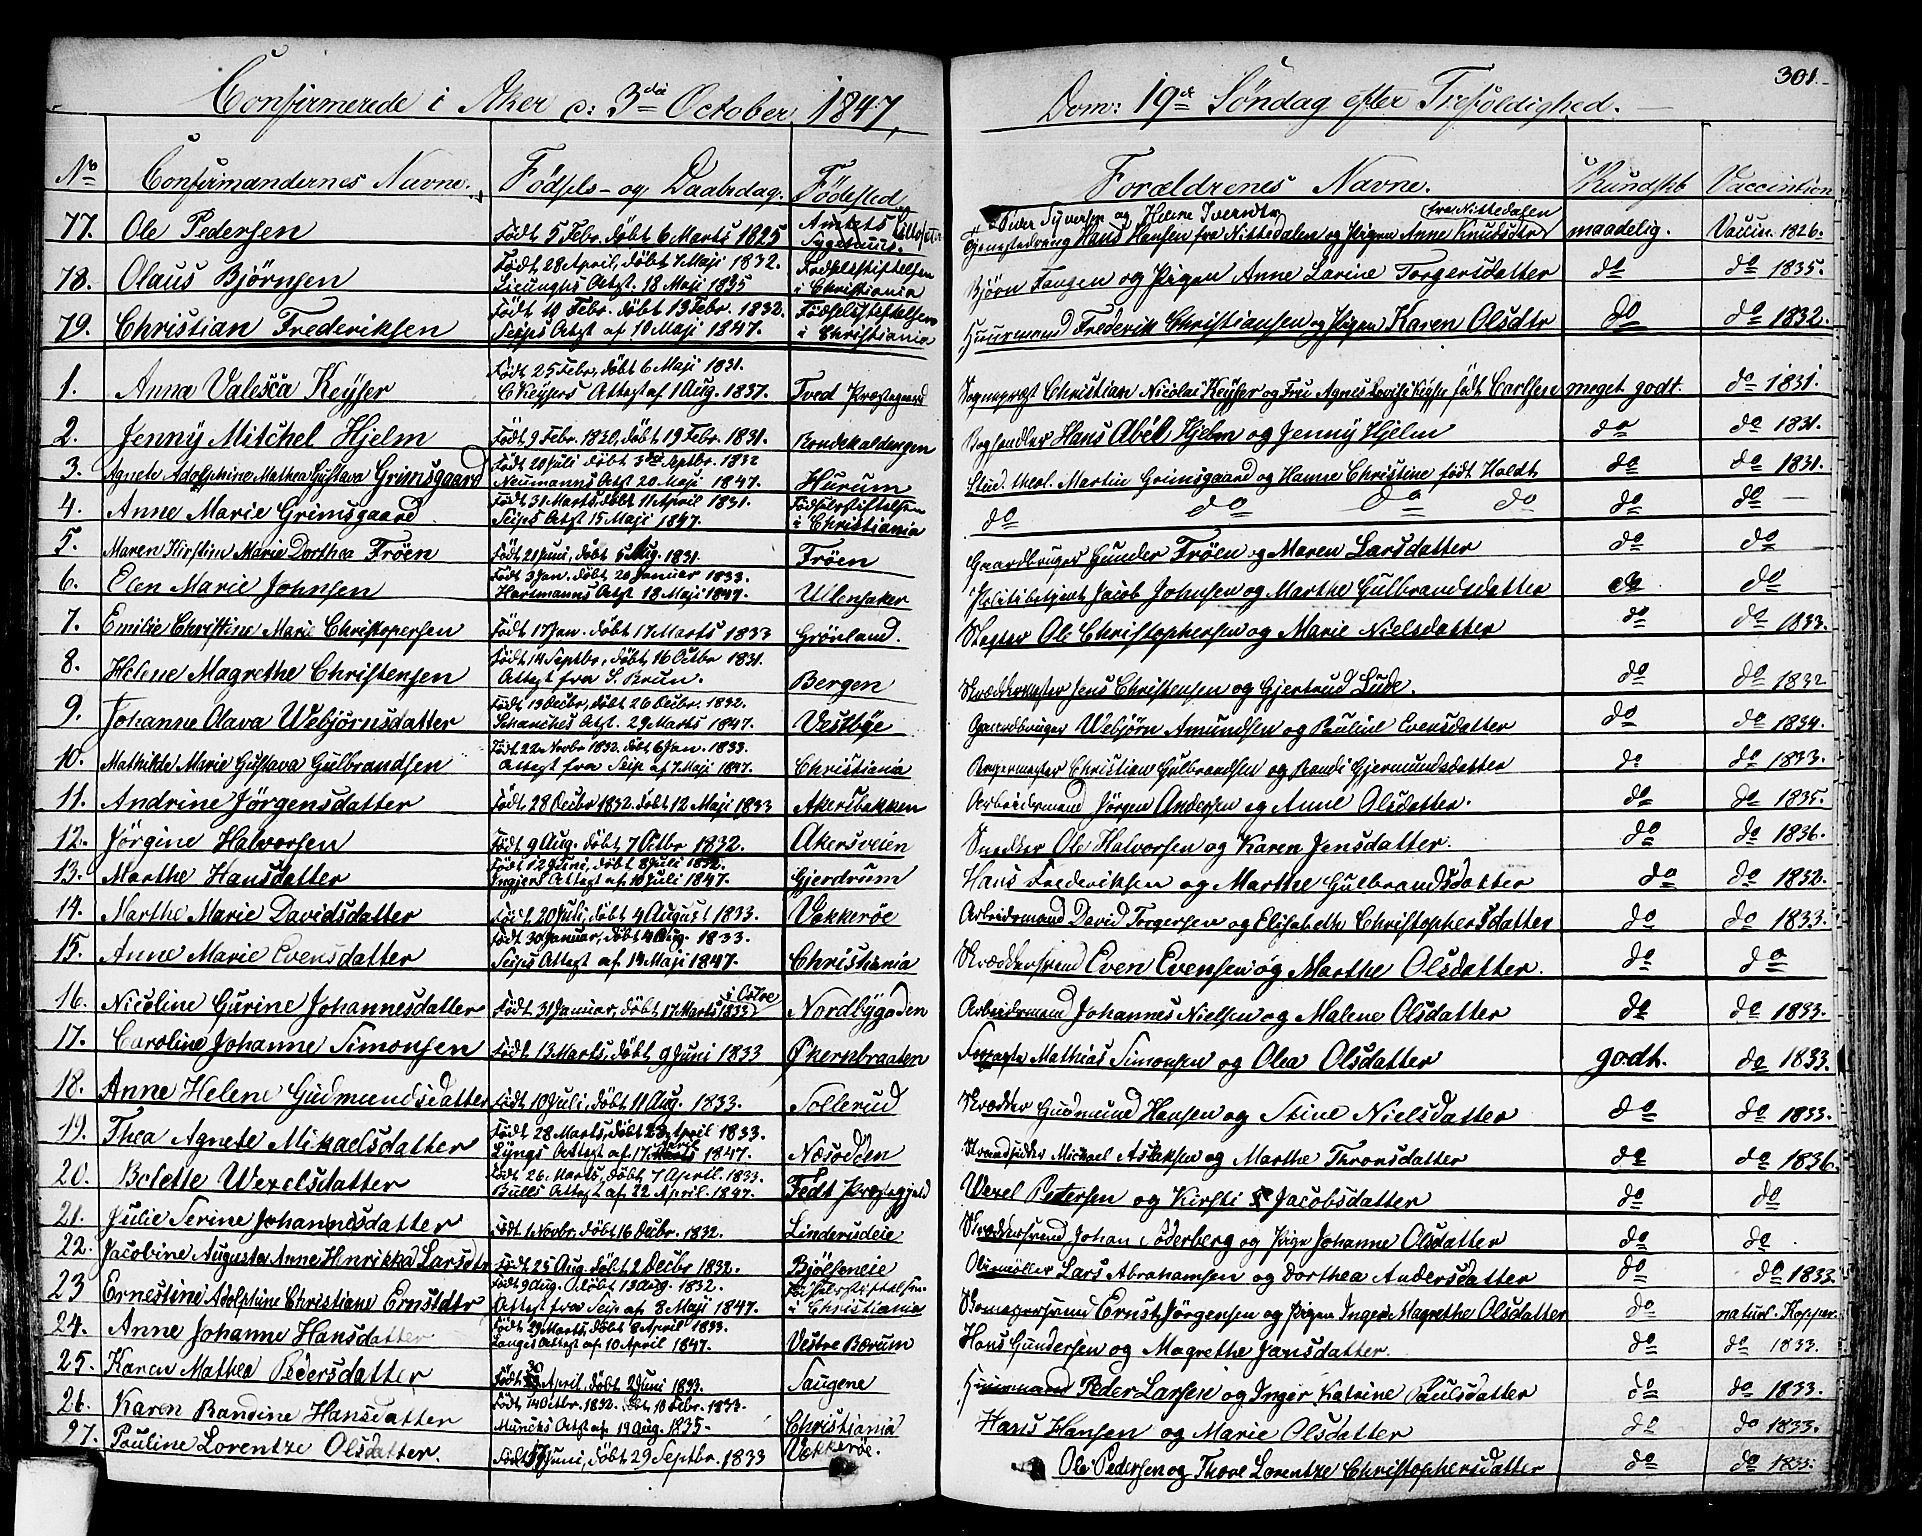 301.
Confirmerede i Aker d: 3die October 1847, Dom: 19de Söndag efter Trefoldighed.
No Confirmandernes Navne. Födsels- og Daabsdag. Födested Forældrenes Navne. Kundskb Vaccination
77. Ole Pedersen Födt 5 Febr. döbt 6 Marts 1825 Amtets Sygehuus. Peder Syversen og Helene Iversdtr
Tjenestedreng Hans Hansen fra Nittedalen og Pigen Anne Knudsdtr fra Nittedalen maadelig. Vaccin. 1826.
78. Olaus Björnsen Födt 28 April, döbt 7 Maji 1832. Attest 18 Maji 1835 Födselsstiftelsen i Christiania Björn Fangen og Pigen Anne Larine Torgersdatter do do 1835.
79. Christian Frederiksen Födt 10 Febr. döbt 13 Febr. 1832. Seips Attst af 10 Maji 1847. Födselsstiftelsen i Christiania Huusmand Frederik Christiansen og Pigen Karen Olsdtr do do 1832.
1. Anna Valesca Keyser Födt 25 Febr, döbt 6 Maji 1831. C Keysers Attest af 1 Aug. 1837. Tved Præstegaard Sogneprest Christian Nicolai Keyser og Fru Agnes Lovise Keyser födt Carlsen meget godt. do 1831.
2. Jenny Mitchel Hjelm Födt 9 Febr. 1830, döbt 19 Febr. 1831. Hans Abel Hjelm og Jenny Hjelm do do 1831.
3. Agnete Adolphine Mathea Gustava Grimsgaard Födt 20 Juli döbt 3die Septbr. 1832 Neumanns Attst 20 Maji 1847. Hurum Stud. theol. Martin Grimsgaard og Hanne Christine födt Holdt do do 1831.
4. Anne Marie Grimsgaard Födt 31 Marts, döbt 11 April 1831. Seips Attst 15 Maji 1847. Födselsstiftelsen i Christiania do do do do do do —
5. Maren Kirstine Marie Dorthea Fröen Födt 21 Juni, döbt 6 Aug. 1831. Fröen Gaardbruger Gunder Fröen og Maren Larsdatter do do
6. Elen Marie Johnsen Födt 3 Jan. döbt 20 Januar 1833. Hartmanns Attst 18 Maji 1847. Ullensaker Politibetjent Jacob Johnsen og Marthe Gulbrandsdatter do do
7. Emilie Christine Marie Christophersen Födt 17 Jan. döbt 17 Marts 1833 Grönland. Ole Christophersen og Marie Nielsdatter do do 1833.
8. Helene Magrethe Christensen Födt 14 Septbr, döbt 16 Octbr 1831. Attest fra S. Brun. Bergen Skræddermester Jens Christensen og Gjertrud Lude. do do 1832
9. Johanne Olava Webjörnsdatter Födt 13 Decbr, döbt 26 Decbr. 1832. Attst. 29 Marts 1847. Vestbye Gaardbruger Webjörn Amundsen og Pauline Evensdatter do do 1834.
10. Mathilde Marie Gustava Gulbrandsen Födt 22 Novbr 1832. döbt 6 Jan. 1833. Attest fra Seip af 7 Maji 1847. Christiania Christian Gulbrandsen og Randi Gjermundsdatter do do 1833.
11. Andrine Jörgensdatter Födt 28 Decbr 1832. döbt 12 Maji 1833 Akersbakken Arbeidsmand Jörgen Andersen og Anne Olsdatter. do do 1835.
12. Jörgine Halvorsen Födt 9 Aug. döbt 7 Octbr 1832. Akersveien Snedker Ole Halvorsen og Karen Jensdatter. do do 1836.
13. Marthe Hansdatter Födt 12 Juni, döbt 8 Juli 1832. Attest af 10 Juli 1847. Gjerdrum Hans Frederiksen og Marthe Gulbrandsdatter do do 1832.
14. Marthe Marie Davidsdatter Födt 20 Juli, döbt 4 August 1833. Vækkeröe Arbeidsmand David Torgersen og Elisabeth Christophersdatter do do 1833.
15. Anne Marie Evensdatter Födt 30 Januar, döbt 4 Aug. 1833. Seips Attest af 14 Maji 1847. Christiania Skræddersvend Even Evensen og Marthe Olsdatter. do do
16. Nicoline Gurine Johannesdatter Födt 31 Januar, döbt 17 Marts 1833 Nordbygaden Arbeidsmand Johannes Nielsen og Malene Olsdatter do do 1833.
17. Caroline Johanne Simonsen Födt 13 Marts, döbt 9 Juni 1833 Økernbraaten Mathias Simonsen og Olea Olsdatter godt. do 1833.
18. Anne Helene Gudmundsdatter Födt 10 Juli, döbt 11 Aug. 1833. Sollerud Skrædder Gudmund Hansen og Stine Nielsdatter do do 1833.
19. Thea Agnete Mikaelsdatter Födt 28 Marts, döbt 23 April 1833. Lyngs Attest af 17 April 1847. Næsodden Strandsidder Michael Aslaksen og Marthe Thronsdatter do do 1836.
20. Bolette Wexelsdatter Födt 26 Marts, döbt 7 Aprtl. 1833. Bulls Attest af 22 April. 1847. Födt Præstegjeld Wexel Petersen og Kirsti Jacobsdatter do do
21. Julie Serine Johannesdatter Födt 1 Novbr, döbt 16 Decbr. 1832. Linderudeie Skræddersvend Johan Söderberg og Pige Johanne Olsdatter do do
22. Jacobine Augusta Anne Henrikka Larsdtr Födt 25 Aug. döbt 2 Decbr 1832. Bjölseneie Oliemöller Lars Abrahamsen og Dorthea Andersdatter do do 1833.
23 Ernestine Adolphine Christiane Ernstdtr Födt 9 Aug. döbt 13 Aug. 1832. Attest fra Seip af 8 Maji 1847. Födselsstiftelsen i Christiania Skomagersvend Ernst Jörgensen og Pigen Inger Magrethe Olsdatter do naturl. Kopper.
24. Anne Johanne Hansdatter Födt 29 Marts, döbt 8 April 1833. Langes Attest af 10 April 1847. Vestre Bærum Hans Gundersen og Magrethe Jansdatter. do do 1833.
25. Karen Mathea Pedersdatter Födt 30 April, döbt 2 Juni 1833. Saugene Huusmand Peder Larsen og Inger Katrine Paulsdatter do do 1833.
26. Karen Randine Hansdatter Födt 14 Octbr. 1832. döbt 10 Febr. 1833. Muncks Attst af 19 Aug. 1835. Christiania Hans Hansen og Marie Olsdatter do do 1833.
27. Pauline Lorentze Olsdatter. Födt Juni, döbt 29 Septbr. 1833 Vækkeröe. Ole Pedersen og Thore Lorentze Christophersdatter do do 1833.